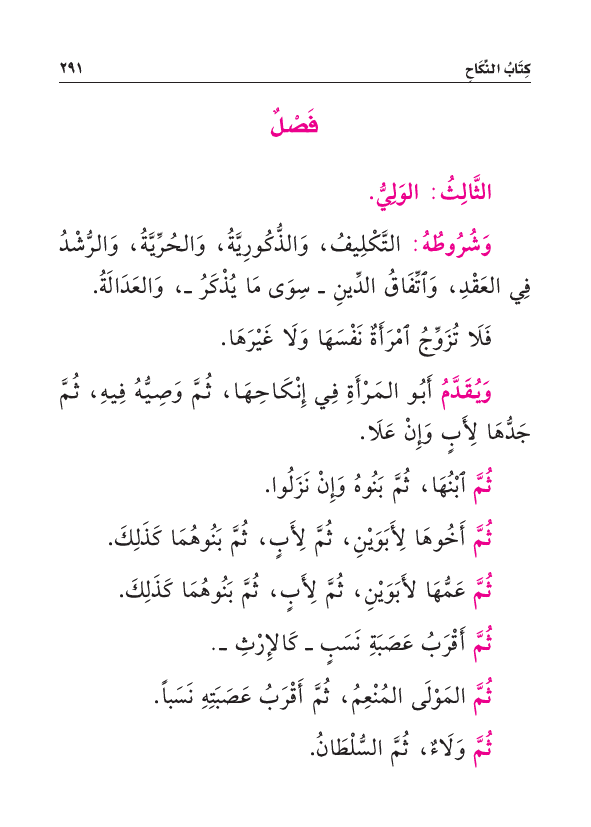 كِتَابُ النِّكَاحِ ٢٩١
فَصْلٌ
الثَّالِثُ: الوَلِيُّ.
وَشُرُوطُهُ: التَّكْلِيفُ، وَالذُّكُورِيَّةُ، وَالحُرِّيَّةُ، وَالرُّشْدُ
فِي العَقْدِ، وَٱتِّفَاقُ الدِّينِ ـ سِوَى مَا يُذْكَرُ ـ، وَالعَدَالَةُ.
فَلَا تُزَوِّجُ ٱمْرَأَةٌ نَفْسَهَا وَلَا غَيْرَهَا.
وَيُقَدَّمُ أَبُو المَرْأَةِ فِي إِنْكَاحِهَا، ثُمَّ وَصِيُّهُ فِيهِ، ثُمَّ
جَدُّهَا لِأَبٍ وَإِنْ عَلَا.
ثُمَّ ٱبْنُهَا، ثُمَّ بَنُوهُ وَإِنْ نَزَلُوا.
ثُمَّ أَخُوهَا لِأَبَوَيْنِ، ثُمَّ لِأَبٍ، ثُمَّ بَنُوهُمَا كَذَلِكَ.
ثُمَّ عَمُّهَا لأَبَوَيْنِ، ثُمَّ لِأَبٍ، ثُمَّ بَنُوهُمَا كَذَلِكَ.
ثُمَّ أَقْرَبُ عَصَبَةِ نَسَبٍ ـ كَالإِرْثِ ـ.
ثُمَّ المَوْلَى المُنْعِمُ، ثُمَّ أَقْرَبُ عَصَبَتِهِ نَسَباً.
ثُمَّ وَلَاءً، ثُمَّ السُّلْطَانُ.